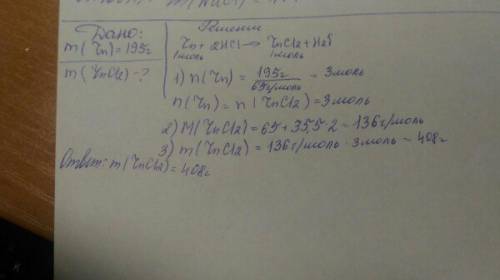 m(NaCl) =
Дано:
m(Zn)=195г
m(ZnCl2)-?
Решение
Zn+2HCl→ZnCl2+H2↑
1моль 1моль
1) n(Zn)= 195г / 65г/моль = 3моль
n(Zn)= n(ZnCl2)=3моль
2) M(ZnCl2)=65+35,5·2=136г/моль
3) m(ZnCl2)=136г/моль·3моль=408г
Ответ: m(ZnCl2)=408г